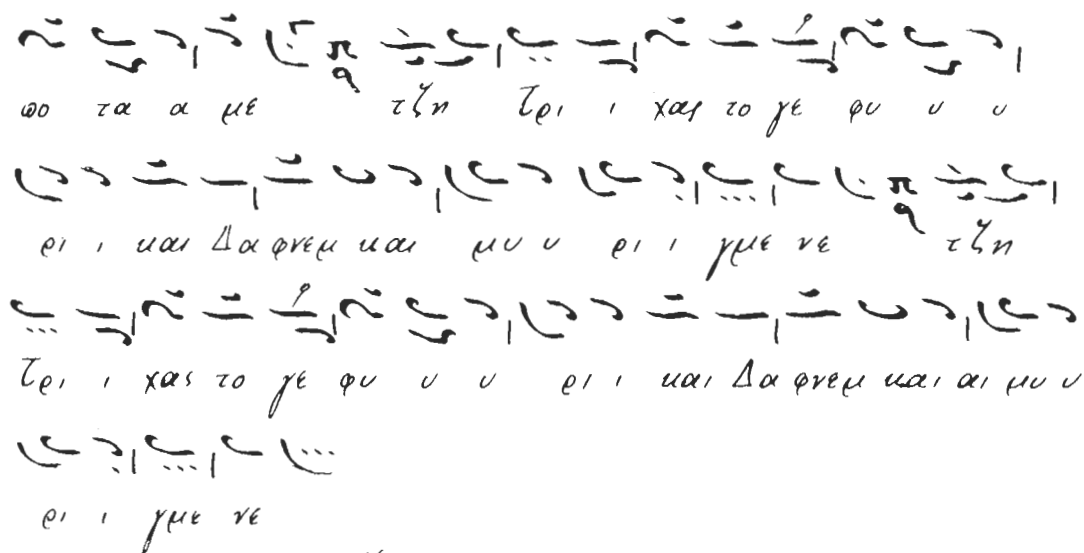 πο τα α με τζη Τρι ι χας το γε φυ υ υ
ρι ι και Δα φνεμ και μυ υ ρι ι γμε νε τζη
Τρι ι χας το γε φυ υ υ ρι ι και Δα φνεμ και αι μυ υ
ρι ι γμε νε